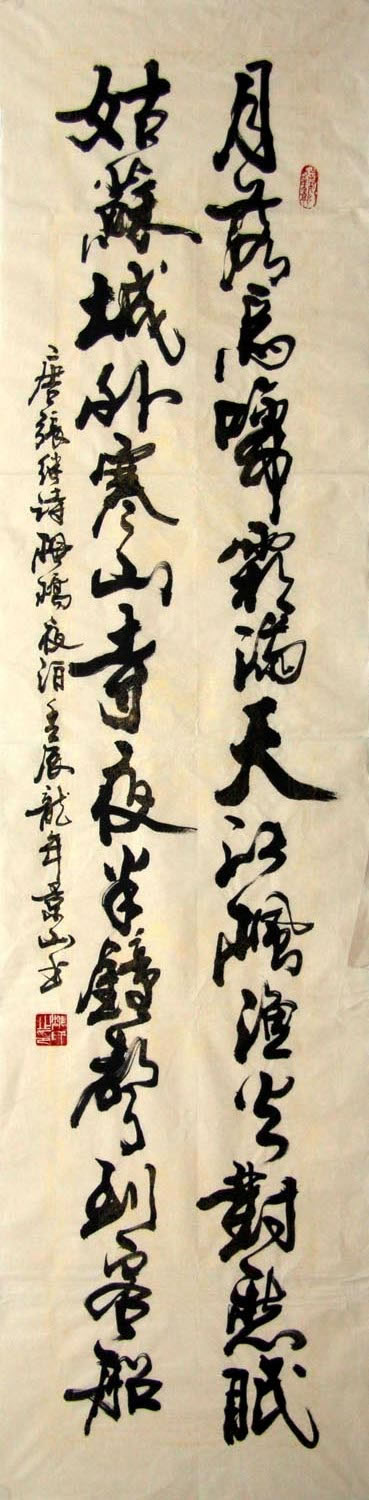 月落烏啼霜滿天江楓漁火對愁眠
姑蘇城外寒山寺夜半鐘聲到客船
唐張继诗楓橋夜泊壬辰龍年景山书